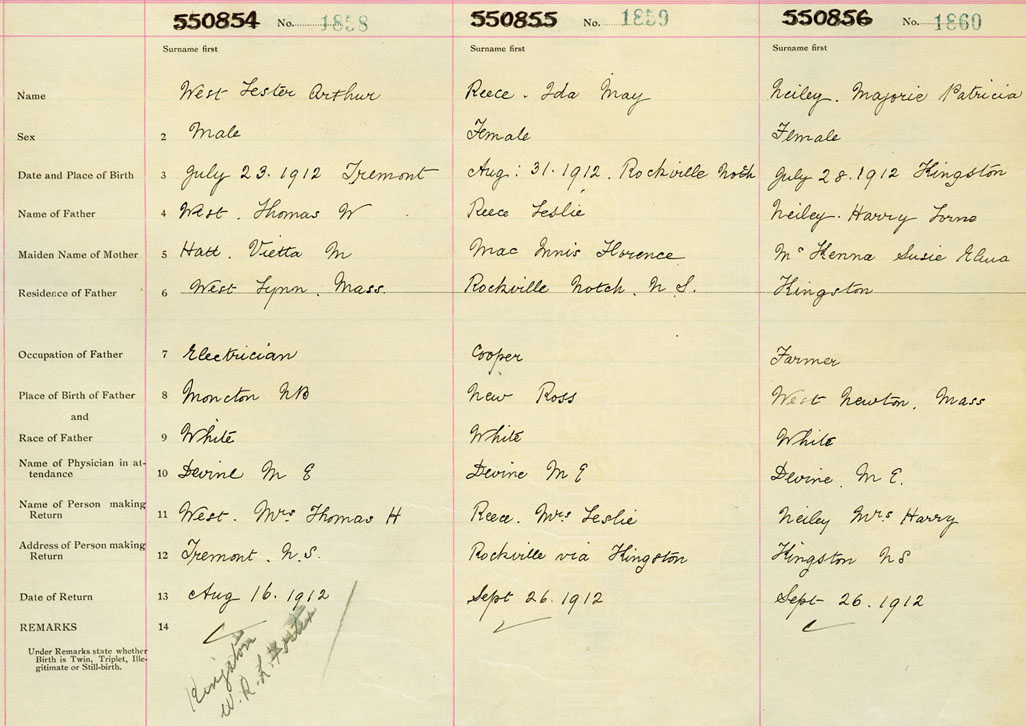 550854 No. 1858 550855 No. 1859 550856 No. 1860
Surname first Surname first Surname first
Name West Lester Arthur Reece. Ida May Neiley. Majorie Patricia
Sex 2 Male Female Female
Date and Place of Birth 3 July 23. 1912 Tremont Aug: 31. 1912. Rockville Notch July 28. 1912 Kingston
Name of Father 4 West. Thomas W Reece Leslie Neiley. Harry Lorne
Maiden Name of Mother 5 Hatt. Vietta M Mac Innis Florence Mc Kenna Susie Elma
Residence of Father 6 West Lynn. Mass. Rockville Notch. N S. Kingston
Occupation of Father 7 Electrician Cooper Farmer
Place of Birth of Father 8 Moncton NB New Ross West Newton. Mass
and
Race of Father 9 White White White
Name of Physician in at-
tendance 10 Devine M E Devine M E Devine. M E.
Name of Person making
Return 11 West. Mrs Thomas H Reece. Mrs Leslie Neiley Mrs Harry
Address of Person making
Return 12 Tremont. N.S. Rockville via Kingston Kingston NS
Date of Return 13 Aug 16. 1912 Sept 26. 1912 Sept 26. 1912
REMARKS 14
Under Remarks state whether
Birth is Twin, Triplet, Ille-
gitimate or Still-birth.
Kingston
W. R. L. Foster